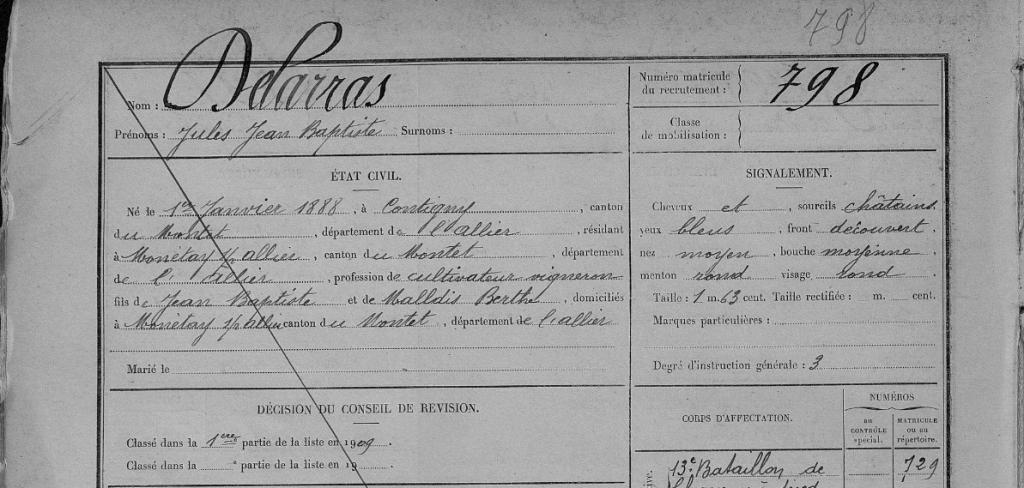 798
Nom : Delarras
Prénoms : Jules Jean Baptiste Surnoms :
Numéro matricule du recrutement : 798
Classe de mobilisation :
ÉTAT CIVIL.
Né le 1er Janvier 1888, à Contigny, canton
du Montet, département de l'allier, résidant
à Monétay s/allier, canton du Montet, département
de l'allier, profession de cultivateur vigneron
fils de Jean Baptiste et de Malldis Berthe, domiciliés
à Monétay s/allier canton du Montet, département de l'allier
Marié le
SIGNALEMENT.
Cheveux et, sourcils châtains
yeux bleus, front découvert
nez moyen, bouche moyenne
menton rond visage rond.
Taille : 1 m. 63 cent. Taille rectifiée : m. cent.
Marques particulières :
Degré d'instruction générale : 3
DÉCISION DU CONSEIL DE REVISION.
Classé dans la 1ère partie de la liste en 1909.
Classé dans la partie de la liste en 19
CORPS D'AFFECTATION.
NUMÉROS
au CONTRÔLE spécial.
MATRICULE ou au répertoire.
13e Bataillon de
729